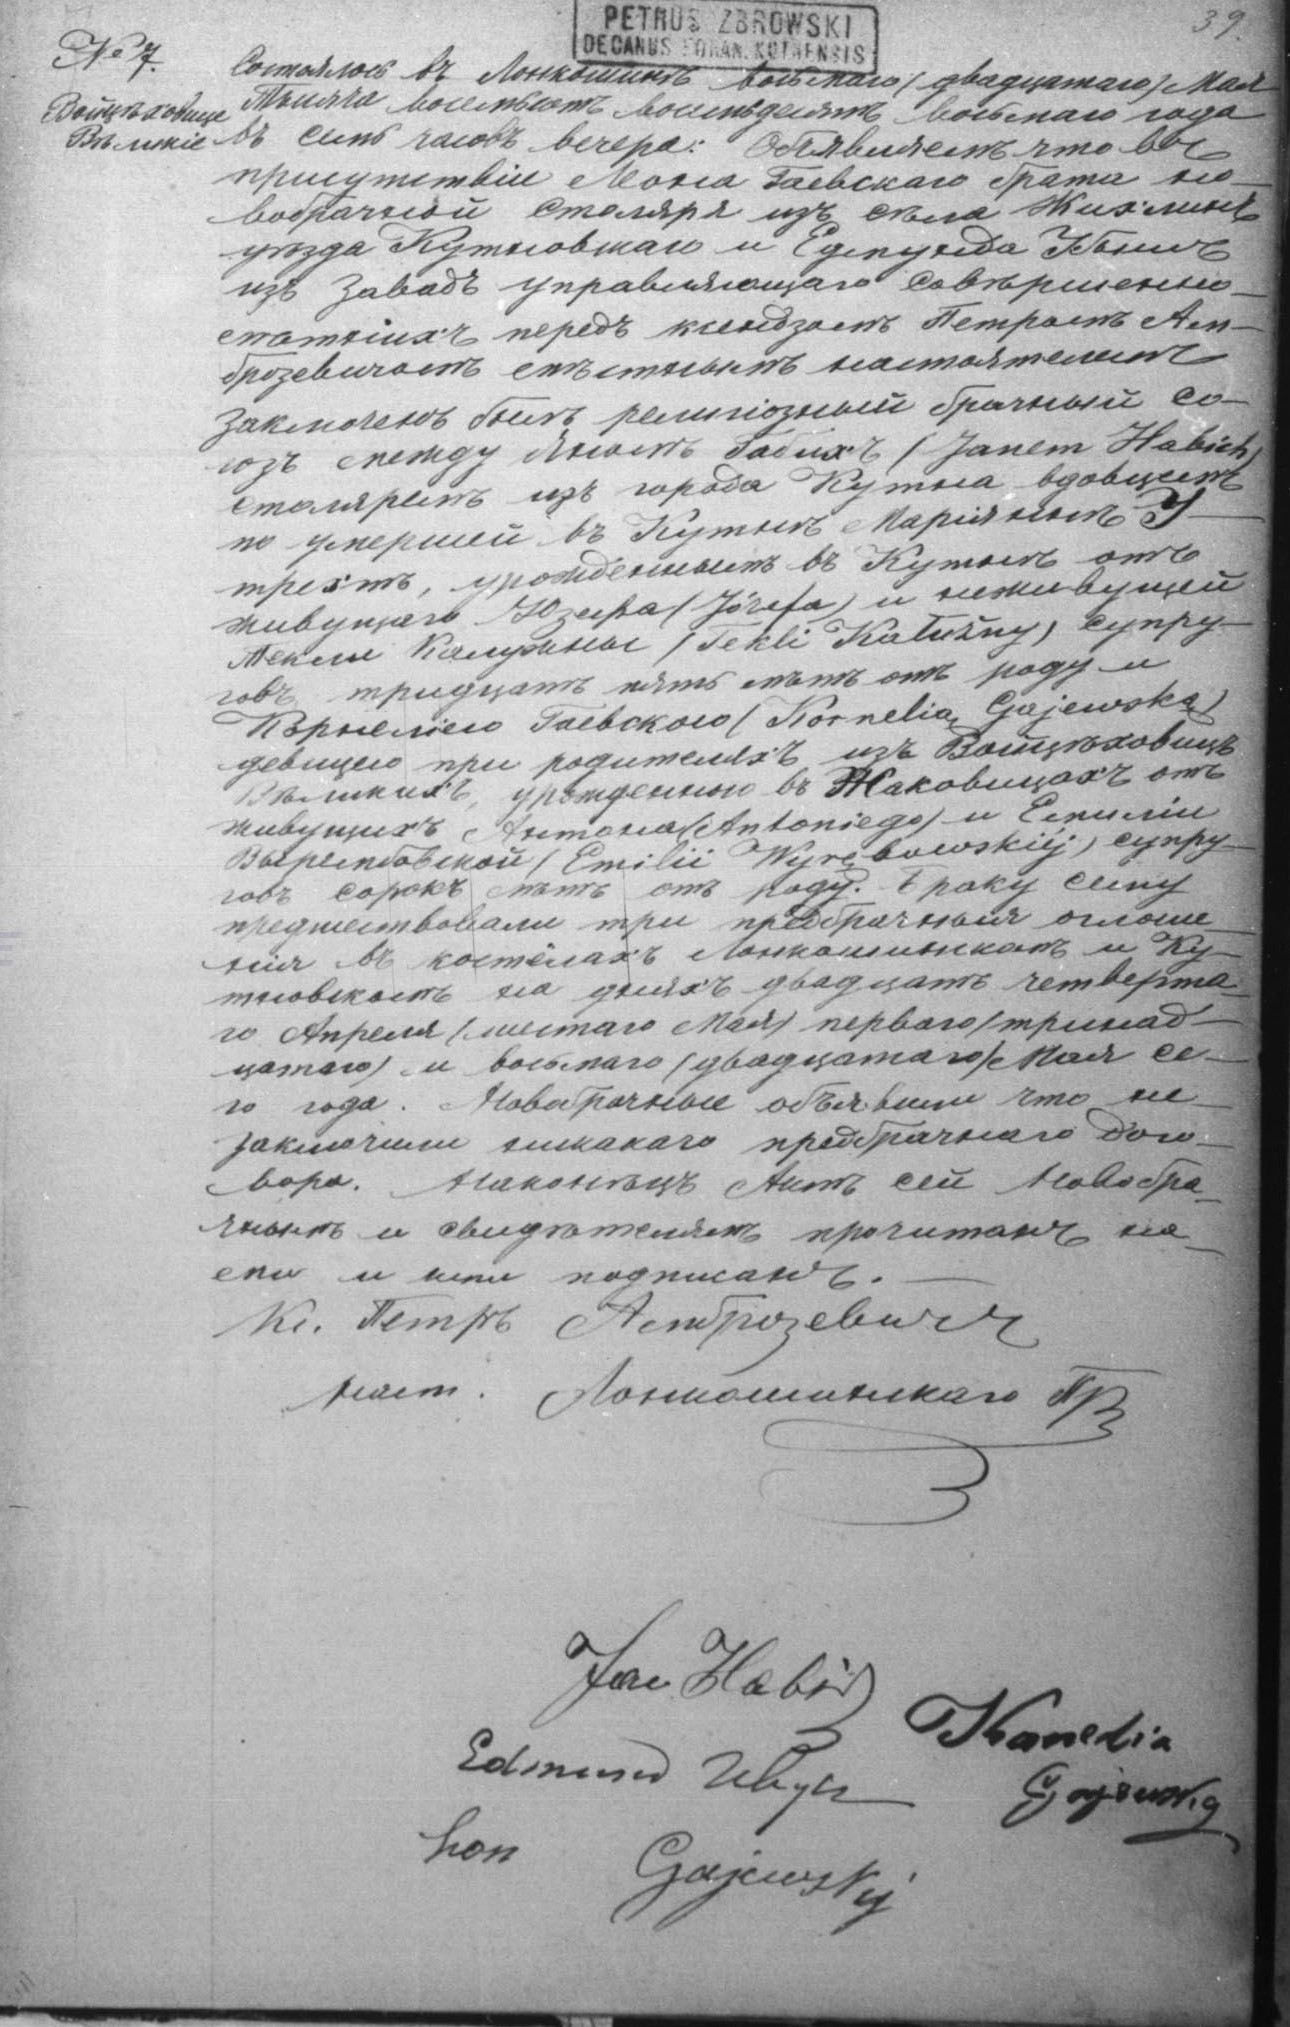 PETRUS ZBROWSKI
DECANUS FORAN. KUTNENSIS
39.
№ 7.
Войцѣховице
Вѣликіе
Состоялось въ Лонкошинѣ восьмаго (двадцатаго) Мая
Тысяча восемьсотъ восемьдесятъ восьмаго года
въ семь часовъ вечера: Объявляемъ что въ
присутствіи Леона Гаевскаго брата но-
вобрачной столяря изъ села Жихлинѣ
уѣзда Кутновскаго и Едмунда
изъ Завадъ управляющаго совѣршенно-
лѣтнихъ передъ ксендзомъ Петромъ Ам-
брозевичомъ мѣстнымъ настоятелемъ
заключенъ былъ религіозный брачный со-
юзъ между Яномъ Габихъ (Janem Habich)
столяремъ изъ города Кутна вдовцемъ
по умершей въ Кутнѣ Маріяннѣ У-
трехтъ, урожденнымъ въ Кутнѣ отъ
живущего Юзефа (Józefa) и неживущей
Текли Калужны (Tekli Kałużny) супру-
говъ тридцать пять лѣтъ отъ роду и
Корнеліею Гаевскою (Kornelią Gajewską)
девицею при родителяхъ изъ Войцѣховицъ
Вѣликихъ, урожденною въ Жаковицахъ отъ
живущихъ Антона (Antoniego) и Емиліи
Вырембовской (Emilii Wyrębowskiéj) супру-
говъ сорокъ лѣтъ отъ роду. Браку сему
предшествовали три предбрачныя оглоше-
нія въ костёлахъ Лонкошинскомъ и Ку-
тновскомъ на дняхъ двадцать четверта-
го Апреля (шестаго Мая) перваго (тринад-
цатаго) и восьмаго (двадцатаго) Мая се-
го года. Новобрачные объявили что не
заключили никакаго предбрачнаго дого-
вора. Наконѣцъ Актъ сей Новобра-
чнымъ и свидѣтелямъ прочитанъ на-
ми и ими подписанъ.
Кс. Петръ Амброзевичъ
наст. Лонкошинскаго Пр
Jan Habich
Kornelia
Edmund
Gajewska
Leon Gajewski